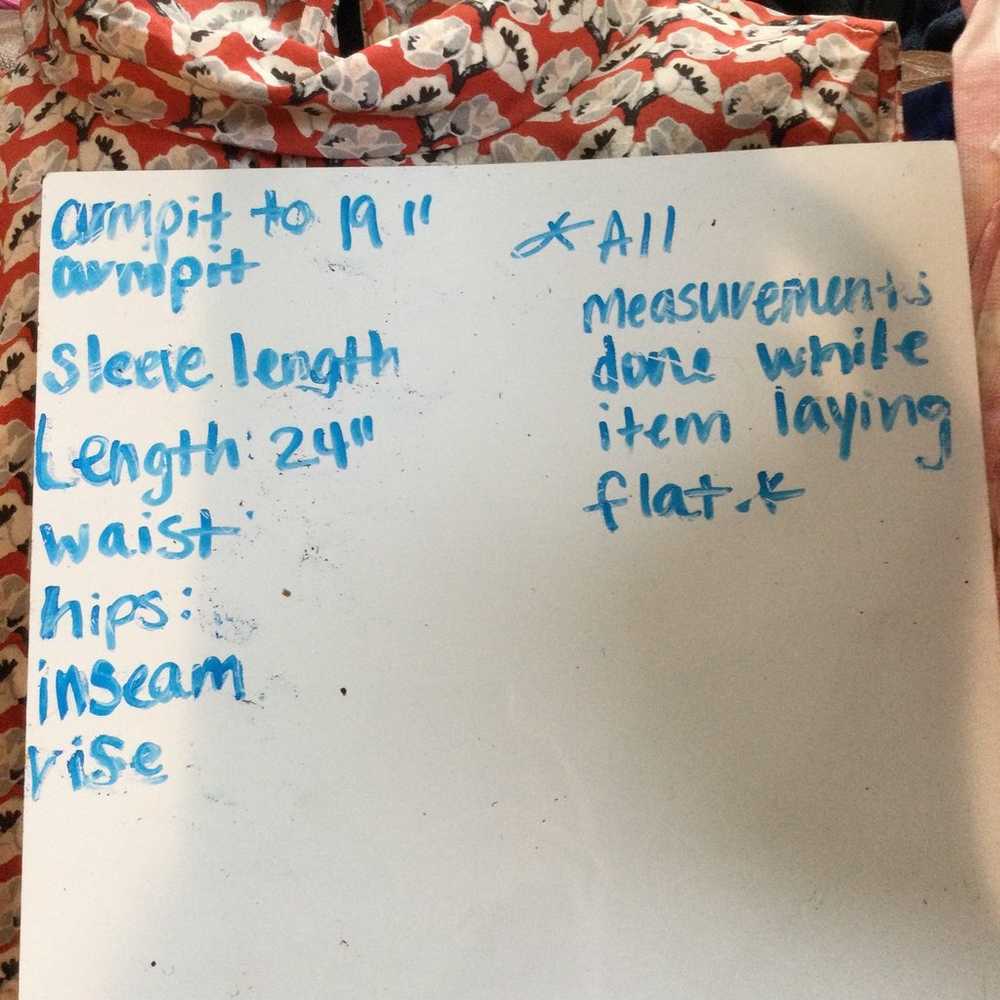 armpit to 19"
armpit
sleeve length
Length: 24"
waist:
hips:
inseam
rise
*All
measurements
done while
item laying
flat.*